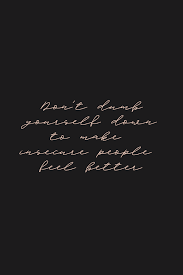 Don't dumb
yourself down
to make
insecure people
feel better